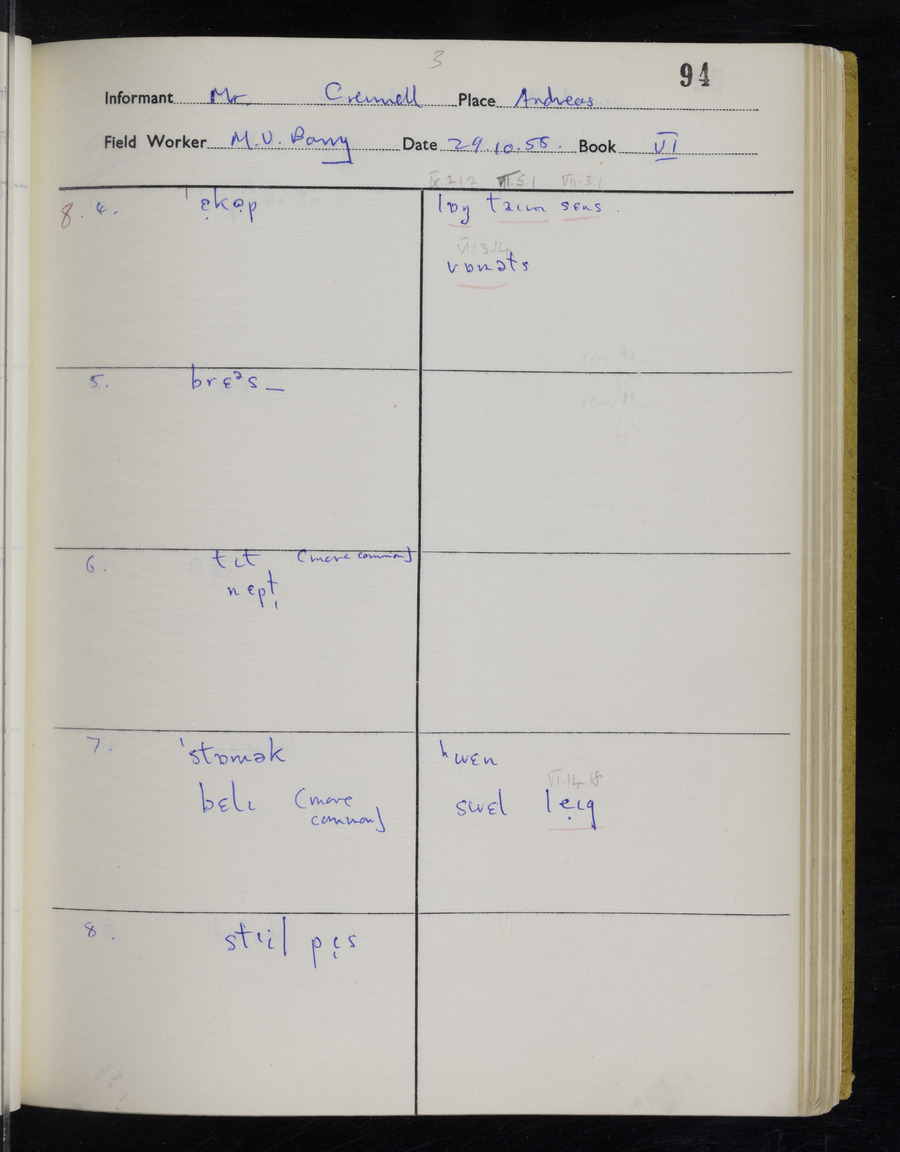 3
94
Informant Mr Crennell Place Andreas
Field Worker M.V. Barry Date 29.10.58. Book VI
IX 2.12 VII.5.1 VII.3.1
8. 4. ˈəkəp lɒg taɪm sɛns.
VI.13.14
vɒməts
5. brɛᵊs _
6. tɪt (more common)
nɛpt
7. ˈstɒmək ʰwɛn
VI.14.18
bɛlɪ (more common) swɛl lɛɪg
8. stɪil pɪs